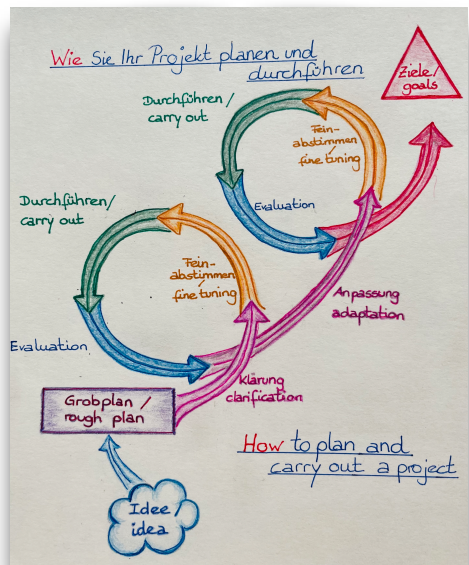 Wie Sie Ihr Projekt planen und
durchführen
Ziele/
goals
Durchführen/
carry out
Fein-
abstimmen/
fine tuning
Evaluation
Durchführen/
carry out
Fein-
abstimmen/
fine tuning
Anpassung
adaptation
Evaluation
Klärung
clarification
Grobplan/
rough plan
How to plan and
carry out a project
Idee/
idea